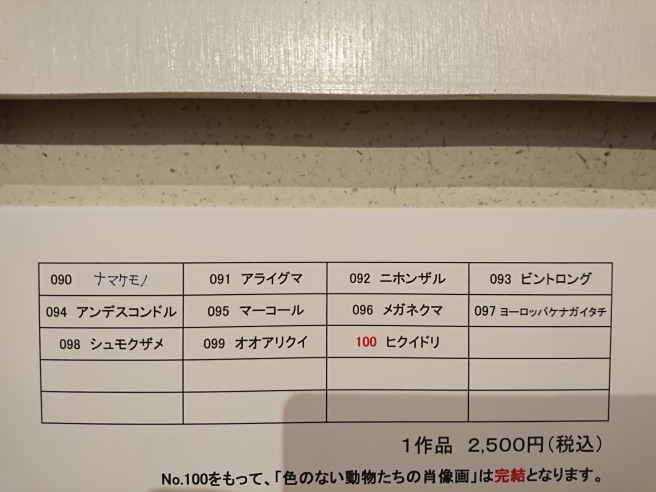 090 ナマケモノ 091 アライグマ 092 ニホンザル 093 ビントロング
094 アンデスコンドル 095 マーコール 096 メガネグマ 097 ヨーロッパケナガイタチ
098 シュモクザメ 099 オオアリクイ 100 ヒクイドリ
1作品 2,500円(税込)
No.100をもって、「色のない動物たちの肖像画」は完結となります。